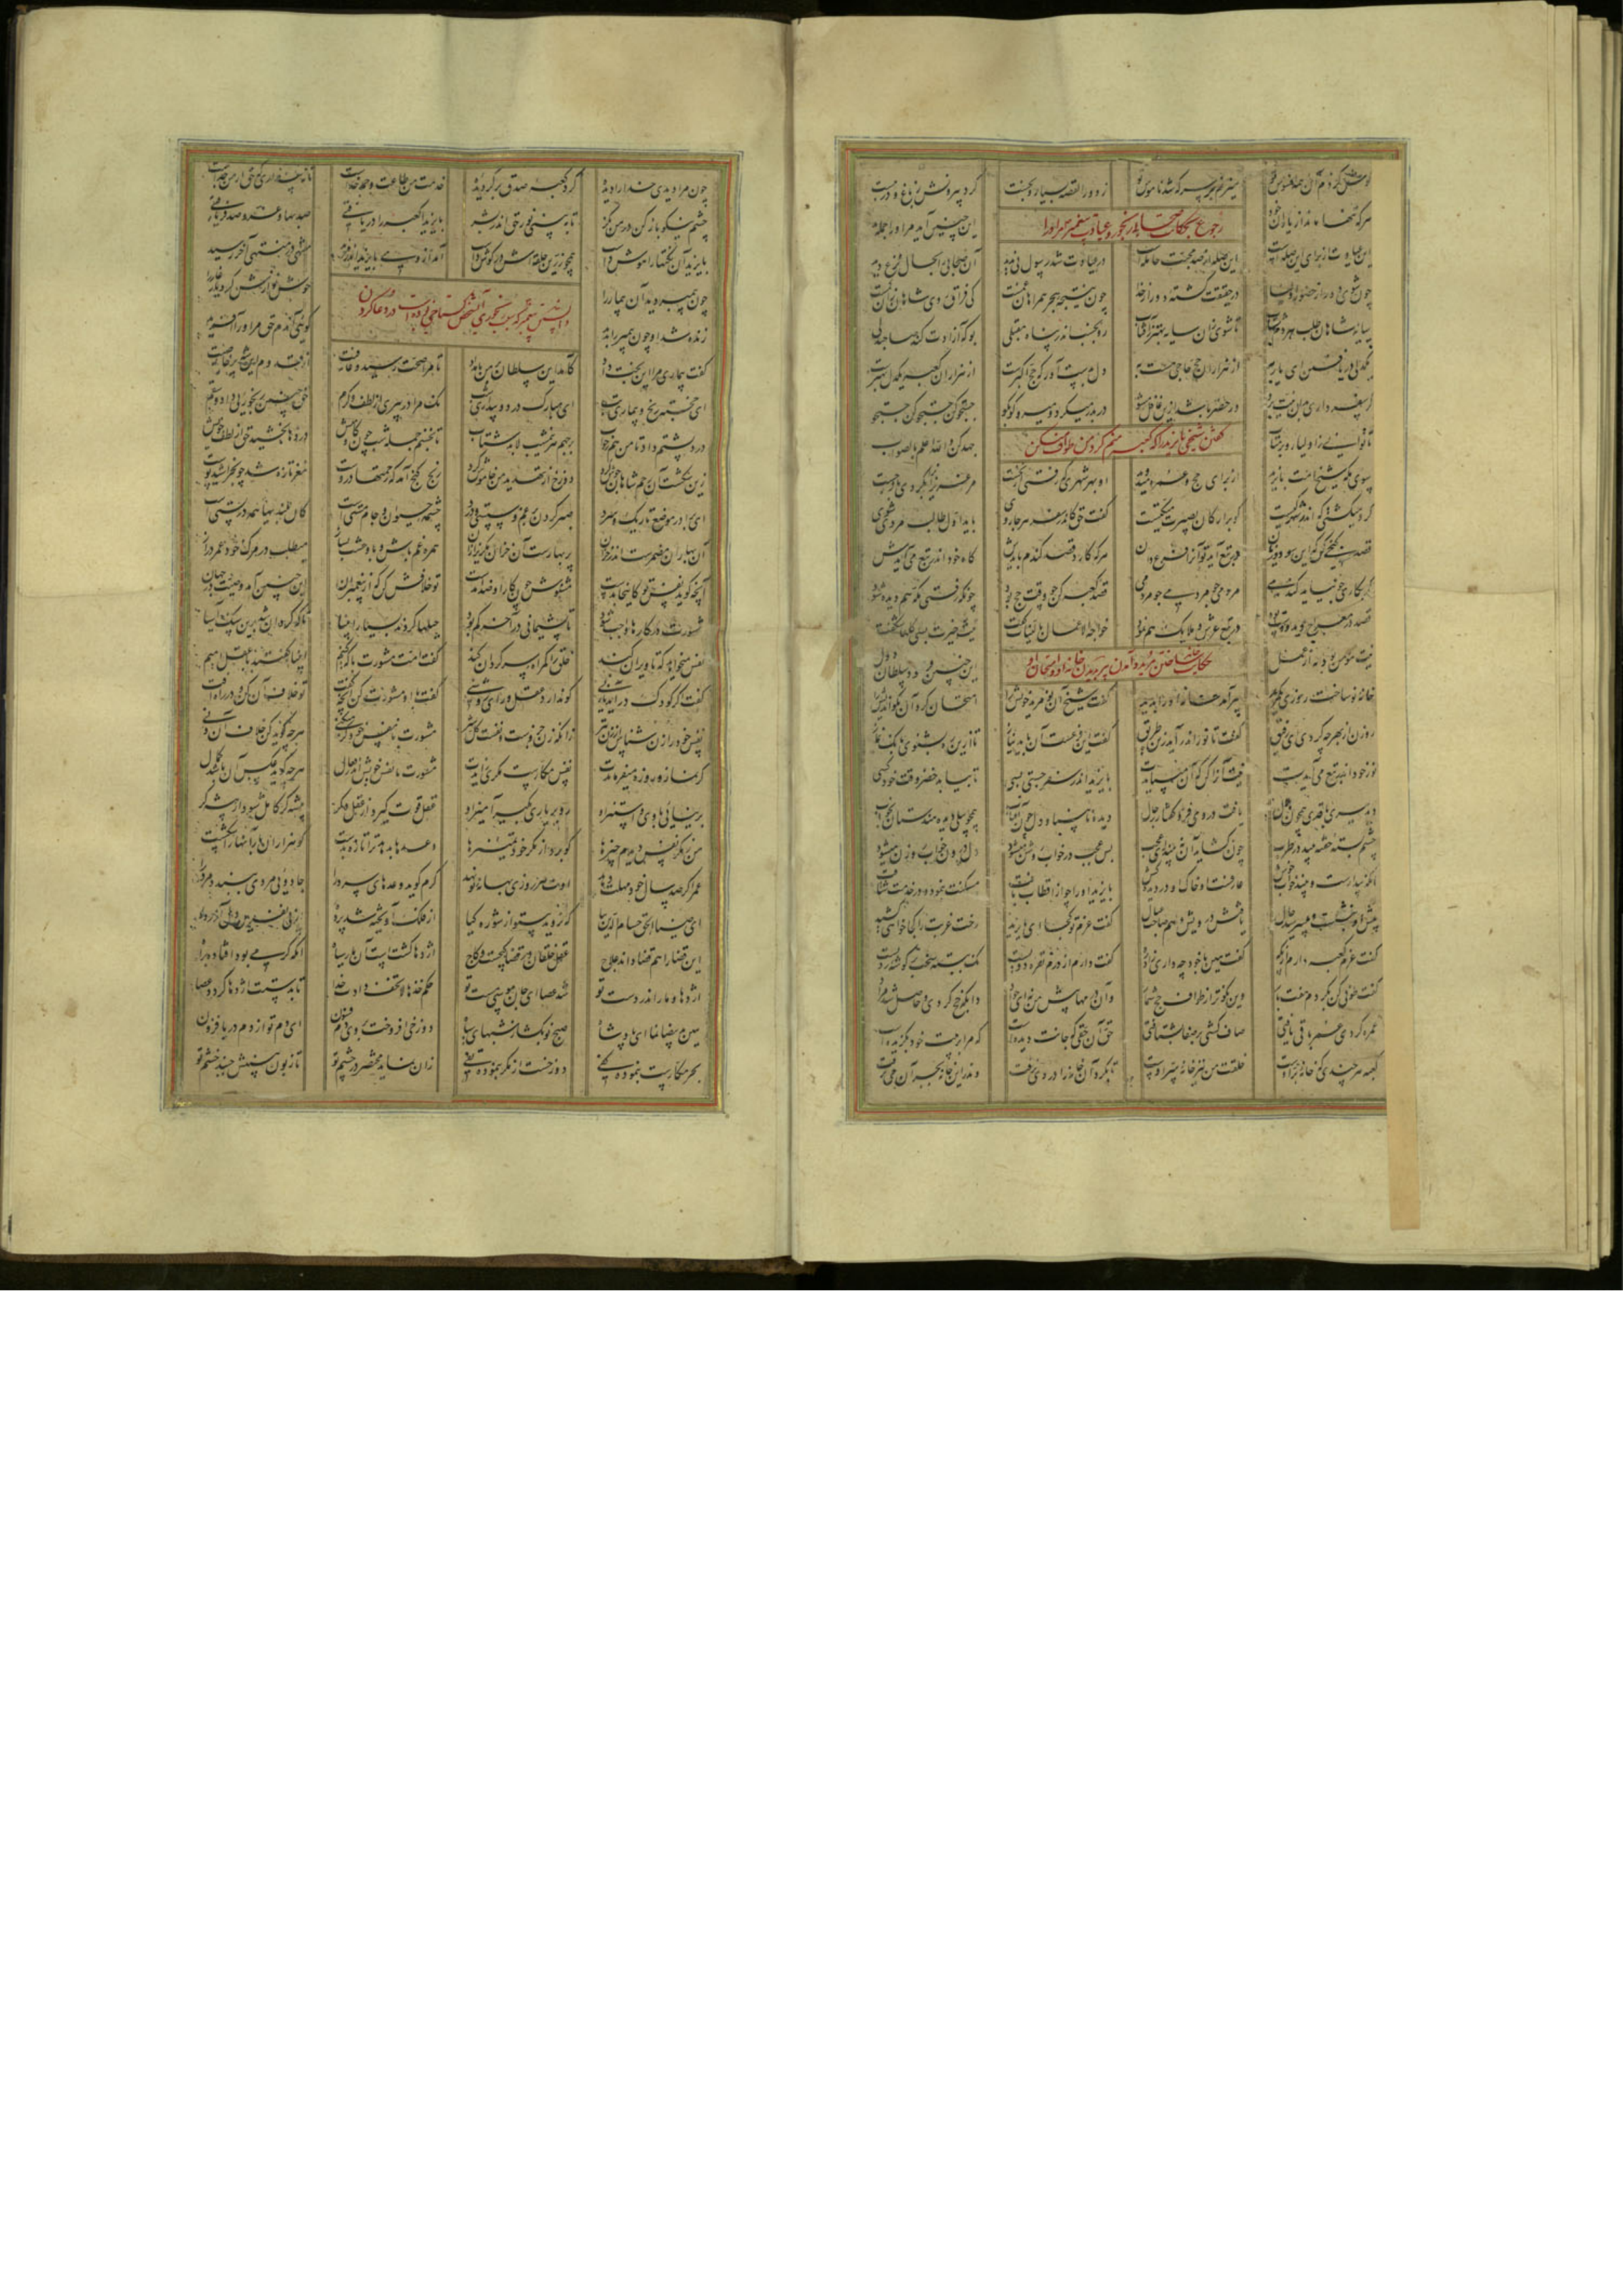 گوش کردم آن همه افسوس تو میزنم بر سر که شد ناموس تو زد ورا القصه بسیار و بخست کرد بیرونش ز باغ و در ببست
هرکه تنها ماند از یاران خود این چنین آید مر او را جمله بد
رجوع بحکایت صحابی رنجور و عیادت پیغمبر مر او را
این عیادت از برای این صله است این صله از صد محبت حامله است در عیادت شد رسول بی ندید آن صحابی را بحال نزع دید
چون شوی دور از حضور اولیا در حقیقت گشته دور از خدا چون نتیجه هجر همراهان غمست کی فراق روی شاهان زان کمست
سایه شاهان طلب هر دم شتاب تا شوی زان سایه بهتر ز آفتاب رو بخسب اندر پناه مقبلی بو که آزادت کند صاحب دلی
یکدلی دریافتن ای یار به از هزاران حج حاجی هست به دل بدست آور که حج اکبرست از هزاران کعبه یکدل بهترست
گر سفر داری بدین نیت برو در حضر باشد ازین غافل مشو دربدر میگرد و میرو کو بکو جستجو کن جستجو کن جستجو
تا توانی ز اولیا رو بر متاب جهد کن والله اعلم بالصواب
گفتن شیخی بایزید را که کعبه منم گرد من طوافی میکن
سوی مکه شیخ امت بایزید از برای حج و عمره میدوید او بهر شهری که رفتی از نخست مر عزیزان را بکردی بازجست
گرد میگشتی که اندر شهر کیست کو بر ارکان بصیرت متکیست گفت حق کاندر سفر هر جا روی باید اول طالب مردی شوی
قصد گنجی کن که این سود و زیان در تبع آید تو آنرا فرع دان هرکه کارد قصد گندم بایدش کاه خود اندر تبع می آیدش
گر بکاری جو نیاید گندمی مردمی جو مردمی جو مردمی قصد کعبه کن چو وقت حج بود چونکه رفتی مکه هم دیده شود
قصد در معراج دید دوست بود در تبع عرش و ملایک هم نمود خواجه الاعمال بالنیات گفت نیت خیرت بسی گلها شکفت
نیت مومن بود به از عمل این چنین فرمود سلطان دول
حکایت خانه ساختن مرید و آمدن پیر بدیدن خانه او و امتحان او
خانه نو ساخت روزی نو مرید پیر آمد خانه او را بدید گفت شیخ آن نو مرید خویش را امتحان کرد آن نکو اندیش را
روزن از بهر چه کردی ای رفیق گفت تا نور اندر آید زین طریق گفت این فرعست آن باید نیاز تا ازین ره بشنوی بانگ نماز
نور خود اندر تبع می آیدت نیت آنرا کن که آن میبایدت بایزید اندر سفر جستی بسی تا بیابد خضر وقت خود کسی
دید پیری با قدی همچون هلال یافت در وی فر و گفتار رجال دیده نابینا و دل چون آفتاب همچو پیلی دیده هندستان بخواب
چشم بسته خفته بیند صد طرب چون گشاید آن نبیند ای عجب بس عجب در خواب روشن میشود دل درون خواب روزن میشود
آنکه بیدارست و بیند خواب خوش عارفست او خاک او در دیده کش بایزید او را چو از اقطاب یافت مسکنت بنمود و در خدمت شتافت
پیش او بنشست و می پرسید حال یافتش درویش و هم صاحب عیال گفت عزم تو کجا ای بایزید رخت غربت را کجا خواهی کشید
گفت عزم کعبه دارم از پگه گفت هین با خود چه داری زاد ره گفت دارم از درم نقره دویست نک ببسته سخت بر گوشه ردیست
گفت طوفی کن بگردم هفت بار وین نکوتر از طواف حج شمار وان درمها پیش من نه ای جواد دانکه حج کردی و حاصل شد مراد
عمره کردی عمر باقی یافتی صاف گشتی بر صفا بشتافتی حق آن حقی که جانت دیده است که مرا بر بیت خود بگزیده است
کعبه هر چندی که خانه بر اوست خلقت من نیز خانه سر اوست تا بکرد آن خانه را در وی نرفت وندرین خانه بجز آن حی نرفت
چون مرا دیدی خدا را دیده گرد کعبه صدق بر گردیده خدمت من طاعت و حمد خداست تا نپنداری که حق از من جداست
چشم نیکو باز کن در من نگر تا ببینی نور حق اندر بشر بایزیدا کعبه را دریافتی صد بها و عز و صد فر یافتی
بایزید آن نکتها را هوش داشت همچو زرین حلقه اش در گوش داشت آمد از وی بایزید اندر مزید منتهی در منتها آخر رسید
دانستن پیغمبر که سبب رنجوری آن شخص گستاخی بوده است در دعا کردن
چون پیمبر دید آن بیمار را خوش نوازش کرد یار غار را
زنده شد او چون پیمبر را بدید گوئی آندم حق مر او را آفرید
گفت بیماری مرا این بخت داد کامد این سلطان بر من بامداد تا مرا صحت رسید و عافیت از قدوم این شه پر خاصیت
ای خجسته رنج و بیماری و تب ای مبارک درد و بیداری شب نک مرا در پیری از لطف و کرم حق چنین رنجوریی داد و سقم
درد پشتم داد تا من هم ز خواب برجهم هر نیمشب لابد شتاب تا نخسبم جمله شب چون گاومیش دردها بخشید حق از لطف خویش
زین شکست آن رحم شاهان جوش کرد دوزخ از تهدید من خاموش کرد رنج گنج آمد که رحمتها دروست مغز تازه شد چو بخراشید پوست
ای برادر موضع تاریک و سرد صبر کردن بر غم و سستی و درد چشمه حیوان و جام مستی است کان بلندیها همه در پستی است
آن بهاران مضمرست اندر خزان پر بهارست آن خزان مگریز از آن همره غم باش و با وحشت بساز میطلب در مرگ خود عمر دراز
آنچه گوید نفس تو کاینجا بدست مشنوش چون کار او ضد آمدست تو خلافش کن که از پیغمبران این چنین آمد وصیت در جهان
مشورت در کارها واجب شود تا پشیمانی در آخر کم بود حیلها کردند بسیار انبیا تا که گردان شد برین سنگ آسیا
نفس میخواهد که تا ویران کند خلق را گمراه و سرگردان کند گفت امت مشورت با که کنیم انبیا گفتند با عقل امیم
گفت اگر کودک در آید یا زنی کو ندارد عقل و رای روشنی گفت با او مشورت کن وآنچه گفت تو خلاف آن کن و در راه افت
نفس خود را زن شناس از زن بتر زانکه زن جزویست و نفست کل شر مشورت با نفس خود گر میکنی هرچه گوید کن خلاف آن دنی
گر نماز و روزه میفرمایدت نفس مکارست مکری زایدت مشورت با نفس خویش اندر فعال هرچه گوید عکس آن باشد کمال
بر نیائی با وی و استیز او رو بر یاری بگیر آمیز او عقل قوت گیرد از عقل دگر پیشه گر کامل شود از پیشه گر
من ز مکر نفس دیدم چیزها کو برد از مکر خود تمییزها وعدها بدهد ترا تازه بدست کو هزاران بار آنها را شکست
عمر اگر صد سال خود مهلت دهد اوت هر روزی بهانه نو نهد گرم گوید وعدهای سرد را جادویی مردی ببندد مرد را
ای ضیاء الحق حسام الدین بیا که نروید بی تو از شوره گیا از فلک آویخته شد پرده از پی نفرین دل آزرده
این قضا را هم قضا داند علاج عقل خلقان در قضا گیجست و کاج اژدها گشتست آن مار سیاه آنکه کرمی بود افتاده براه
اژدها و مار اندر دست تو شد عصا ای جان موسی مست تو حکم خذها لا تخف دادت خدا تا بدستت اژدها گردد عصا
هین ید بیضا نما ای پادشاه صبح نو بگشا ز شبهای سیاه دوزخی افروخت بر وی دم فسون ای دم تو از دم دریا فزون
بحر مکارست بنموده کفی دوزخست از مکر بنموده تفی زان نماید مختصر در چشم تو تا زبون بینیش جنبد خشم تو